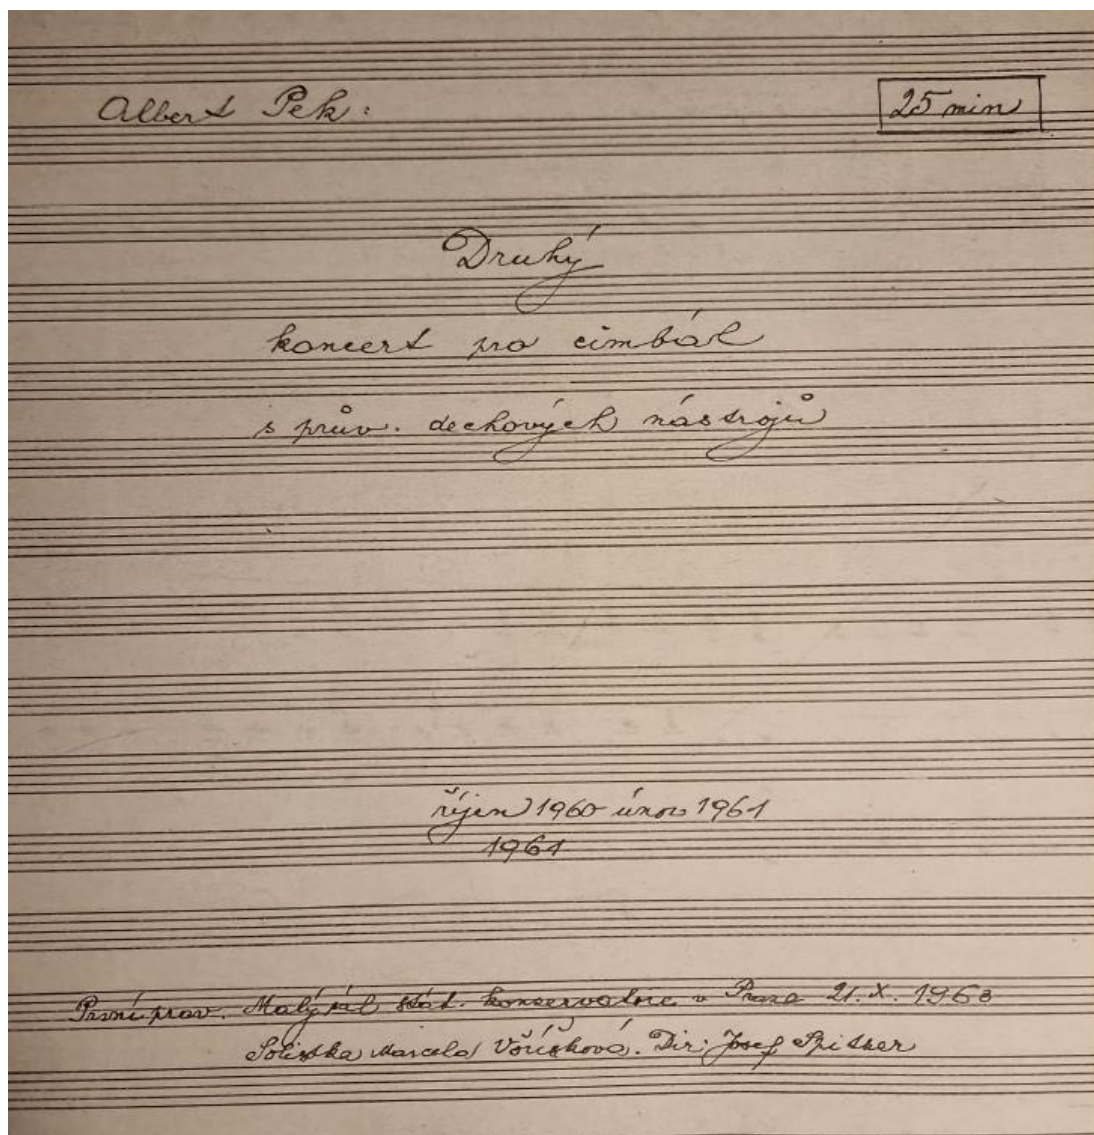 Albert Pek:
25 min
Druhý
koncert pro cimbál
s prův. dechových nástrojů
říjen 1960 únor 1961
1961
První prov. Malý sál stát. konservatoře v Praze 21. X. 1963
Solistka Marcela Vőříšková. Dir: Josef Spitzer